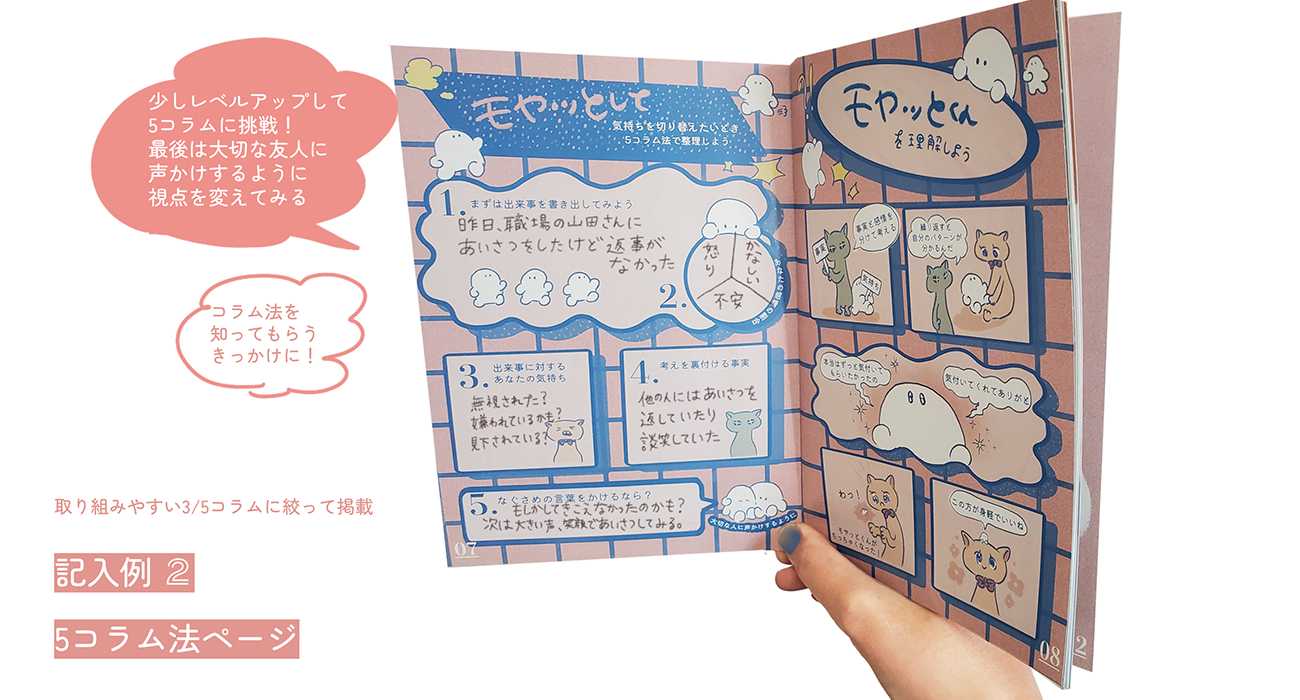 少しレベルアップして
5コラムに挑戦！
最後は大切な友人に
声かけするように
視点を変えてみる
コラム法を
知ってもらう
きっかけに！
取り組みやすい3/5コラムに絞って掲載
記入例 2
5コラム法ページ
モヤッとして
気持ちを切り替えたいとき
5コラム法で整理しよう
1. まずは出来事を書き出してみよう
昨日、職場の山田さんに
あいさつをしたけど返事が
なかった
2.
怒り
かなしい
不安
3. 出来事に対する
あなたの気持ち
無視された？
嫌われているかも？
見下されている？
4. 考えを裏付ける事実
他の人にはあいさつを
返していたり
談笑していた
5. なぐさめの言葉をかけるなら？
もしかしてきこえなかったのかも？
次は大きい声、笑顔であいさつしてみる。
大切な人に声かけするように
07
モヤッとくん
を理解しよう
事実と感情を
分けて考える
事実
気持ち
繰り返すと
自分のパターンが
分かるんだ
本当はずっと気付いて
もらいたかったの
気付いてくれてありがと
わっ！
モヤッとくんが
ちっちゃくなった！
この方が身軽でいいね
08
2